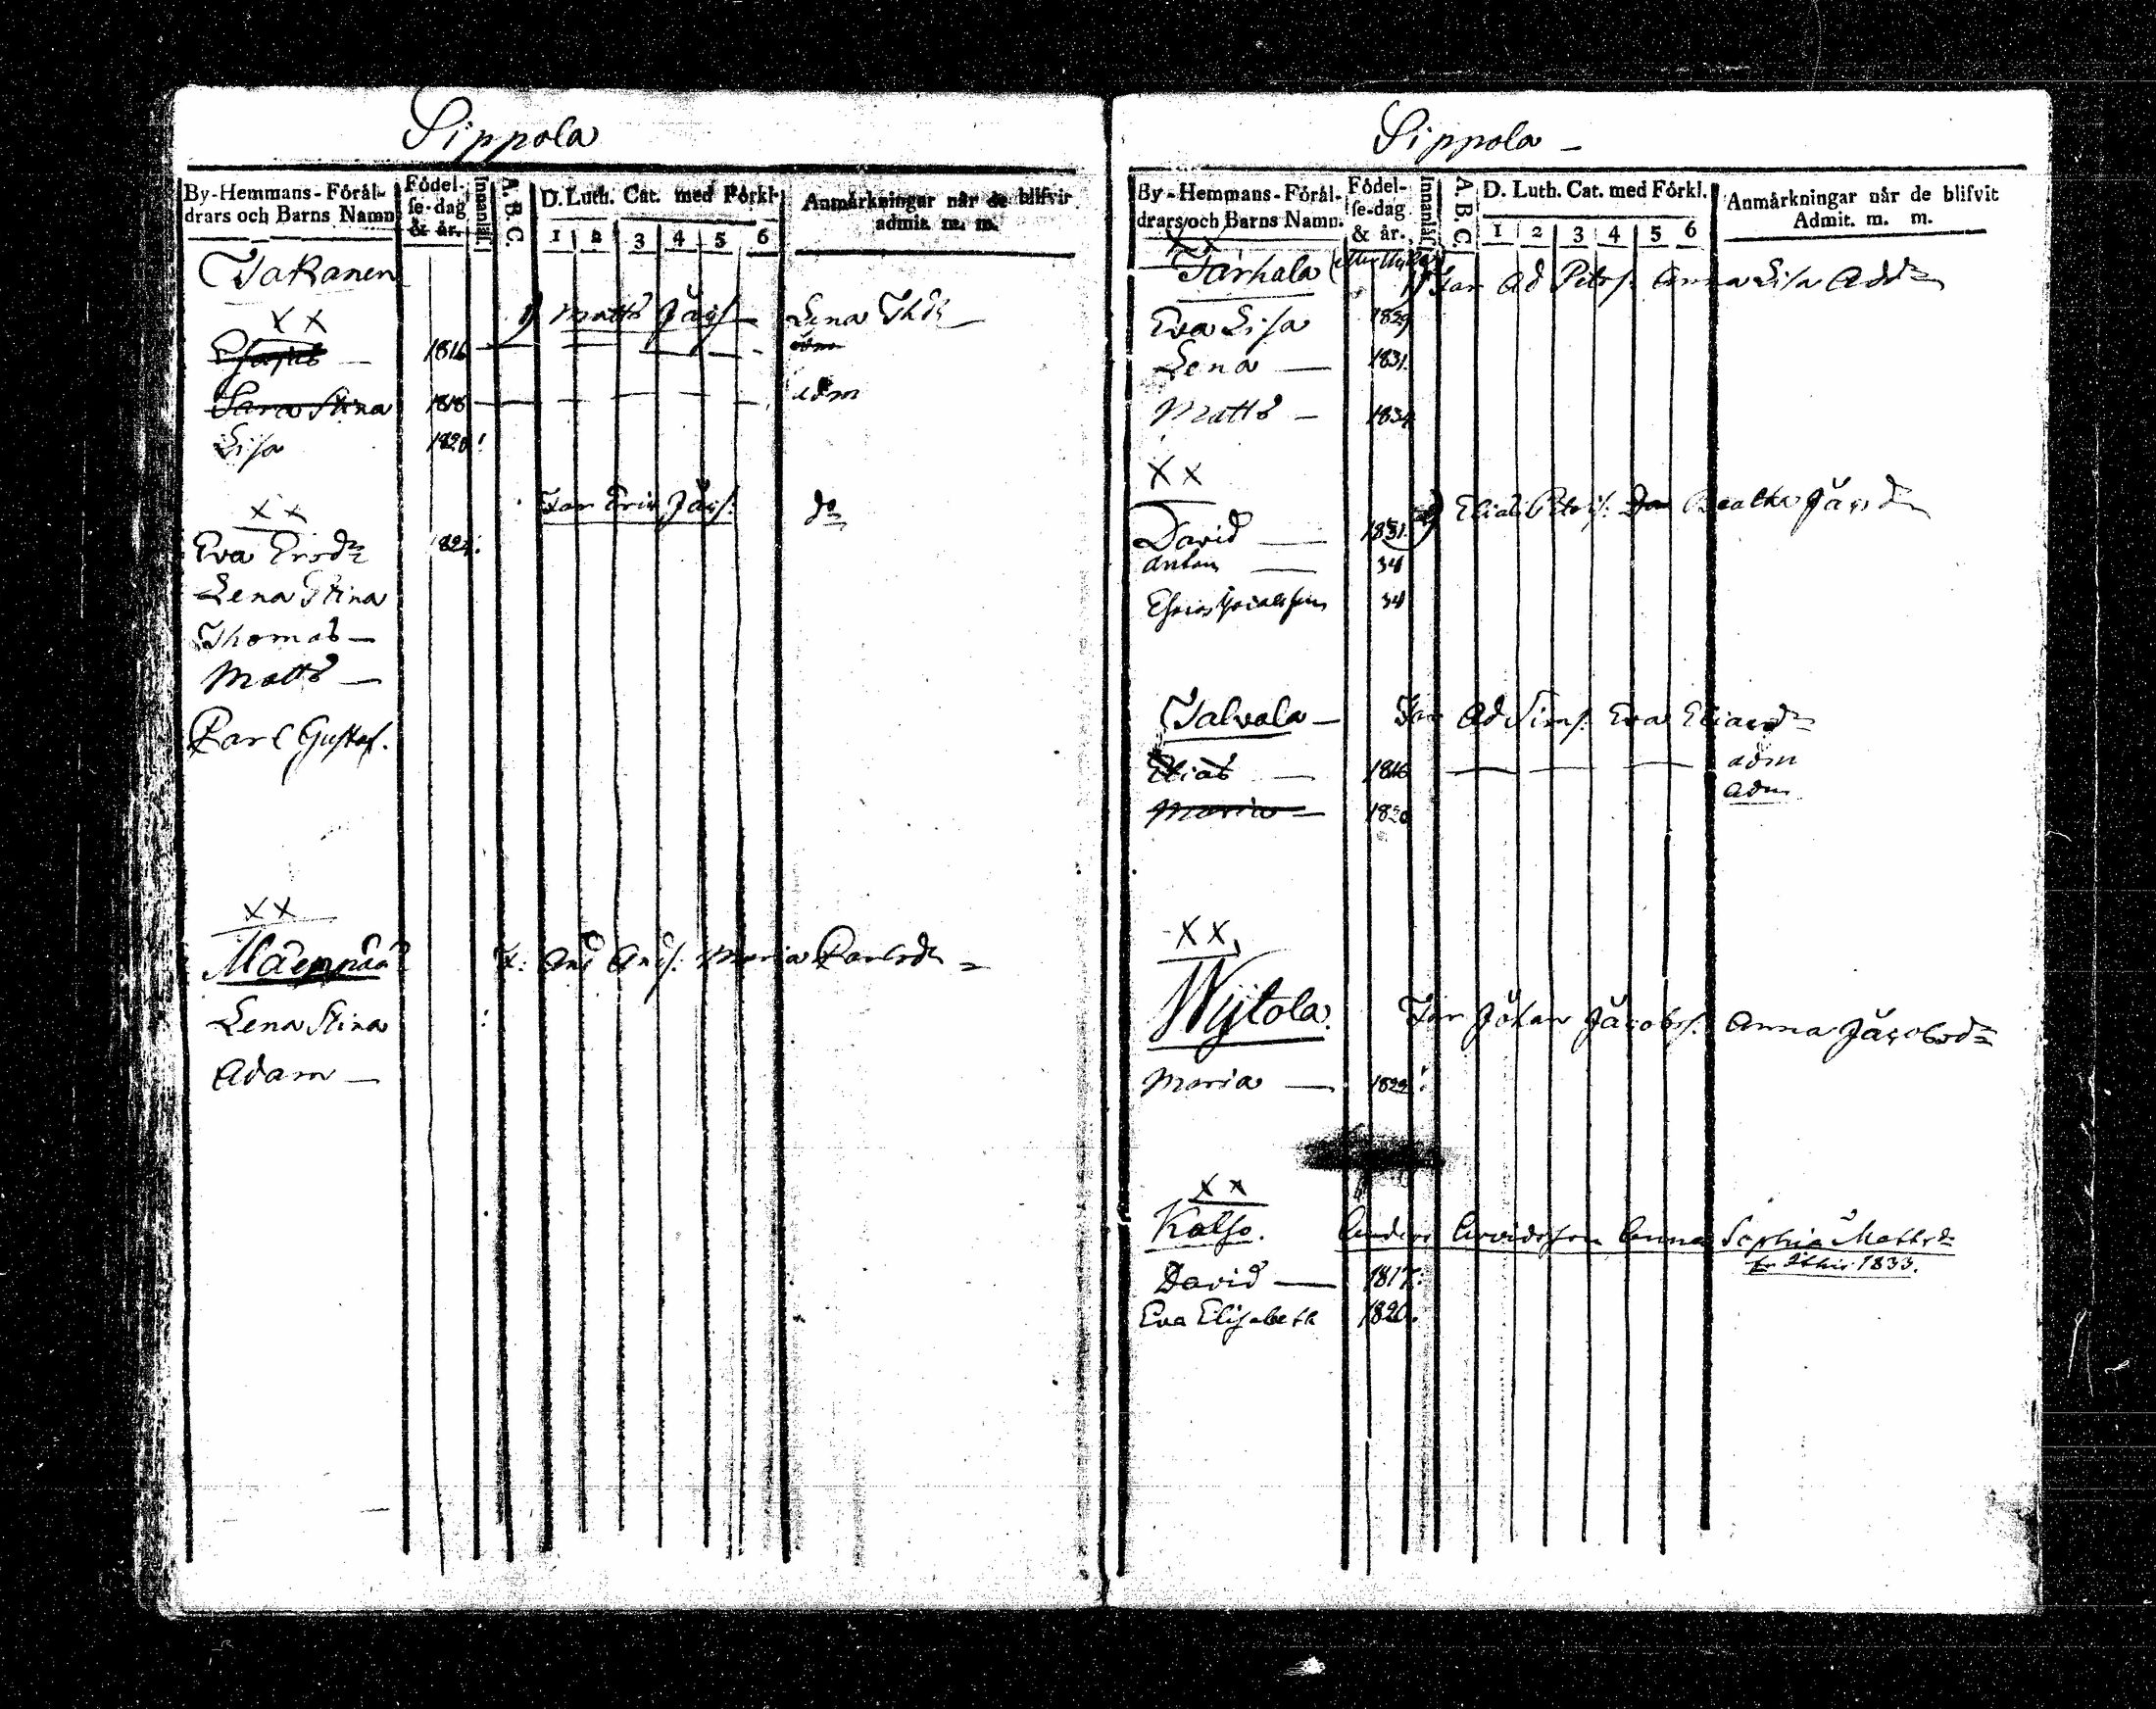 Sippola
By-Hemmans-Förål-
drars och Barns Namn
Födel-
se-dag
& år.
Innanläs.
A. B. C.
D. Luth. Cat. med Förkl.
1 2 3 4 5 6
Anmårkningar når de blifvit
admit. m. m.
Takanen
X X
1) Matts Jacs. Lena Thdr
1816 adm
Sara Stina 1818 adm
Lisa 1820
X X
Far Eric Jacs. do
Eva Ersdr 182
Lena Stina
Thomas
Matts
Carl Gustaf.
XX
Mäenpää F: And Ands. Maria Carlsdr
Lena Stina
Adam
Sippola
By-Hemmans-Förål-
drars och Barns Namn.
Födel-
se-dag
& år.
Innanläs.
A. B. C.
D. Luth. Cat. med Förkl.
1 2 3 4 5 6
Anmårkningar når de blifvit
Admit. m. m.
X X
Tarhala 1) Far Ad Petrs. Anna Lisa Addr
Eva Lisa 1829
Lena 1831.
Matts 1834
X X
2) Elias Petris. Beatha Jacsdr
David 1831.
Anton 34
34
Talvala Far Ad Sims. Eva Eliaedr
Elias 1816 adm
Maria 1820 adm
XX
Wijtola. Far Johan Jacobs. Anna Jacobsdr
Maria 1822
X X
Kalso. Anders Arvidsson Anna Sophia Mattsdr
1833.
David 1817.
Eva Elisabeth 1820.